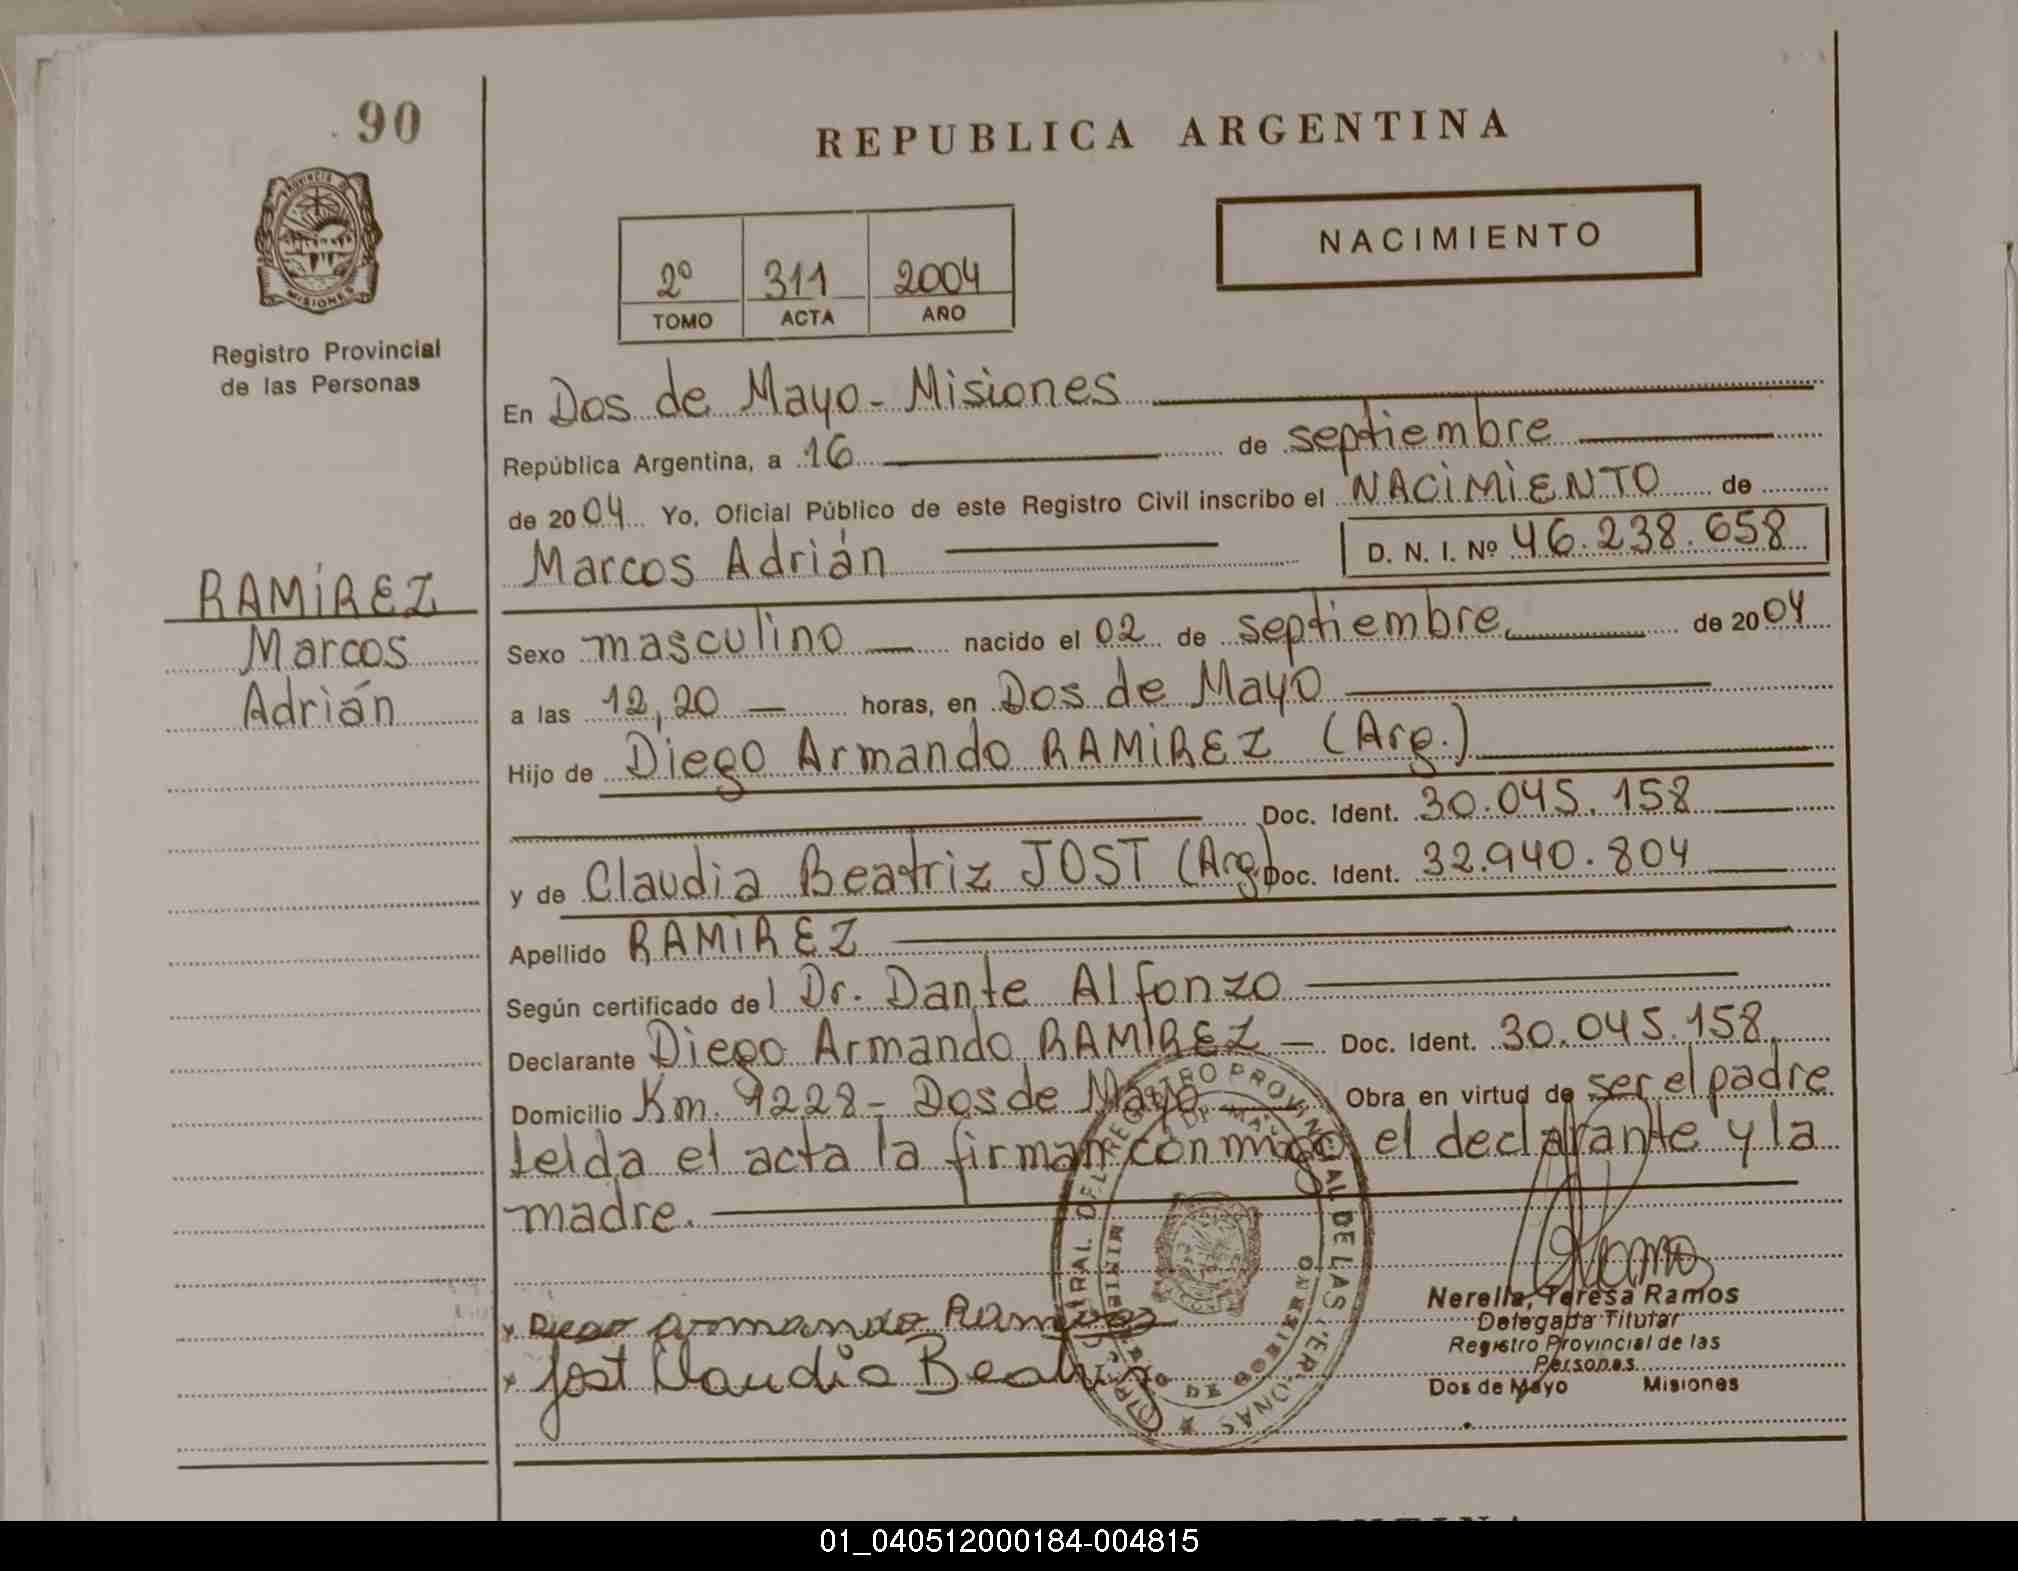 90
REPUBLICA ARGENTINA
PROVINCIA DE
MISIONES
Registro Provincial
de las Personas
NACIMIENTO
2º 311 2004
TOMO ACTA AÑO
En Dos de Mayo - Misiones
República Argentina, a 16 de septiembre
de 2004 Yo, Oficial Público de este Registro Civil inscribo el NACIMIENTO de
Marcos Adrián D. N. I. Nº 46.238.658
RAMIREZ
Marcos
Adrián
Sexo masculino nacido el 02 de septiembre de 2004
a las 12,20 horas, en Dos de Mayo
Hijo de Diego Armando RAMIREZ (Arg.)
Doc. Ident. 30.045.158
y de Claudia Beatriz JOST (Arg.) Doc. Ident. 32.940.804
Apellido RAMIREZ
Según certificado del Dr. Dante Alfonzo
Declarante Diego Armando RAMIREZ Doc. Ident. 30.045.158
Domicilio Km. 9228 - Dos de Mayo Obra en virtud de ser el padre
Leida el acta la firman conmigo el declarante y la
madre.
x Diego Armando Ramirez
x Jost Claudia Beatriz
DEL REGISTRO PROVINCIAL DE LAS PERSONAS
DE GOBIERNO
Nerella, Teresa Ramos
Delegada Titular
Registro Provincial de las
Personas
Dos de Mayo Misiones
01_040512000184-004815